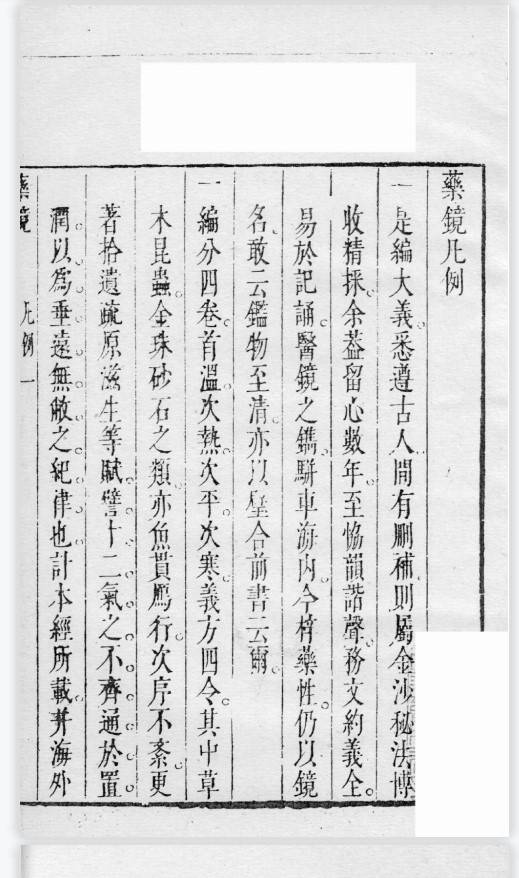 藥鏡凡例
一是編大義悉遵古人間有刪補則屬金沙秘法博
收精採余葢留心數年至恊韻諧聲務文約義全
易於記誦醫鏡之鐫駢車海內今梓藥性仍以鏡
名敢云鑑物至清亦以璧合前書云爾
一編分四卷首溫次熱次平次寒義方四令其中草
木昆蟲金珠砂石之類亦魚貫鴈行次序不紊更
著拾遺疏原滋生等賦譬十二氣之不齊通於置
潤以為垂遠無敝之紀律也計本經所載并海外
藥鏡 凡例 一